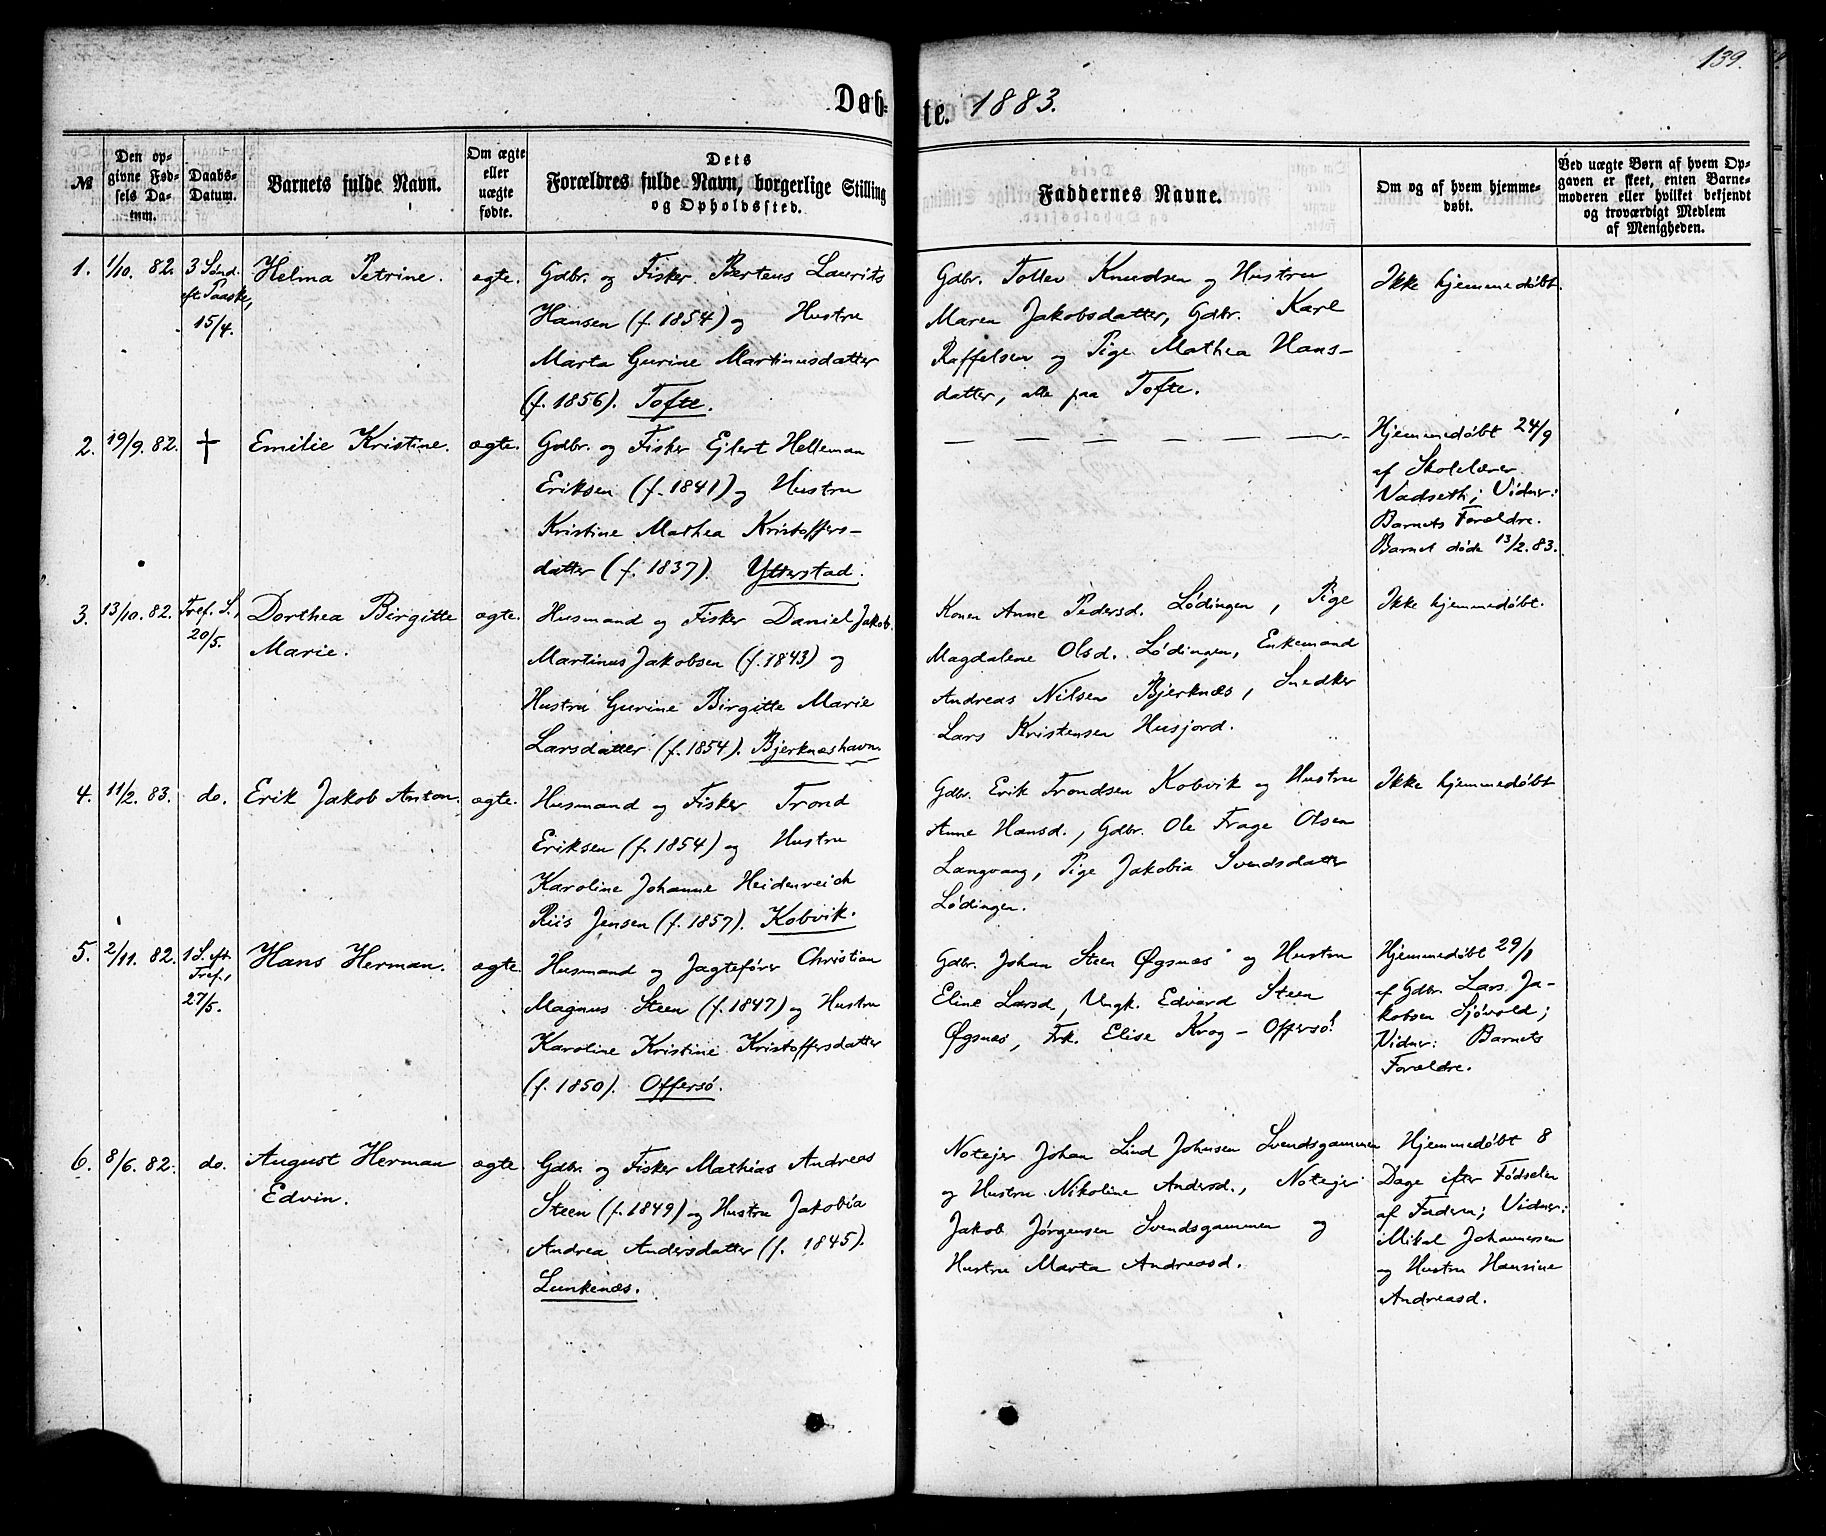 139.
Døb-te. 1883.
№
Den opgivne Fødsels Datum.
Daabs-Datum.
Barnets fulde Navn.
Om ægte eller uægte fødte.
Dets Forældres fulde Navn, borgerlige Stilling og Opholdssted.
Faddernes Navne.
Om og af hvem hjemmedøbt.
Ved uægte Børn af hvem Opgaven er skeet, enten Barnemoderen eller hvilket bekjendt og troværdigt Medlem af Menigheden.
1.
1/10. 82.
3 Sønd.
eft. Paaske,
15/4.
Helma Petrine.
ægte.
Gdbr. og Fisker Berteus Laurits
Hansen (f. 1854) og Hustru
Marta Gurine Martinusdatter
(f. 1856). Tofte.
Gdbr. Tollev Knudsen og Hustru
Maren Jakobsdatter, Gdbr. Karl
Raffelsen og Pige Mathea Hans-
datter, alle paa Tofte.
Ikke hjemmedøbt.
2.
19/9. 82.
†
Emilie Kristine.
ægte.
Gdbr. og Fisker Ejlert Helleman
Eriksen (f. 1841) og Hustru
Kristine Mathea Kristoffers-
datter (f. 1837). Ytterstad.
— — — — — —
Hjemmedøbt 24/9
af Skolelærer
Vadseth; Vidner:
Barnets Forældre.
Barnet døde 13/2. 83.
3.
13/10. 82.
Tref. S.,
20/5.
Dorthea Birgitte
Marie.
ægte.
Husmand og Fisker Daniel Jakob
Martinus Jakobsen (f. 1843) og
Hustru Gurine Birgitte Marie
Larsdatter (f. 1854). Bjerknæshavn.
Konen Anne Pedersd. Lødingen, Pige
Magdalene Olsd. Lødingen, Enkemand
Andreas Nilsen Bjerknæs, Snedker
Lars Kristensen Husjord.
Ikke hjemmedøbt.
4.
11/2. 83.
do.
Erik Jakob Anton.
ægte.
Husmand og Fisker Trond
Eriksen (f. 1854) og Hustru
Karoline Johanne Heidenreich
Riis Jensen (f. 1857). Kobvik.
Gdbr. Erik Trondsen Kobvik og Hustru
Anne Hansd., Gdbr. Ole Frage Olsen
Langvaag, Pige Jakobia Svendsdatter
Lødingen.
Ikke hjemmedøbt
5.
2/11. 82.
1 S. eft.
Tref.,
27/5.
Hans Herman.
ægte.
Husmand og Jagtefører Christian
Magnus Steen (f. 1847) og Hustru
Karoline Kristine Kristoffersdatter
(f. 1850). Offersø.
Gdbr. Johan Steen Øgsnæs og Hustru
Eline Larsd., Ungk. Edvard Steen
Øgsnæs, Frk. Elise Krog – Offersø.
Hjemmedøbt 29/1
af Gdbr. Lars Ja-
kobsen Sjøvold;
Vidner: Barnets
Forældre.
6.
8/6. 82.
do.
August Herman
Edvin.
ægte.
Gdbr. og Fisker Mathias Andreas
Steen (f. 1849) og Hustru Jakobia
Andrea Andersdatter (f. 1845).
Lunkenæs.
Notejer Johan Lind Johnsen Svendsgammen
og Hustru Nikoline Andersd., Notejer
Jakob Jørgensen Svendsgammen og
Hustru Marta Andreasd.
Hjemmedøbt 8
Dage efter Fødselen
af Faderen; Vidner:
Mikal Johannesen
og Hustru Hansine
Andreasd.